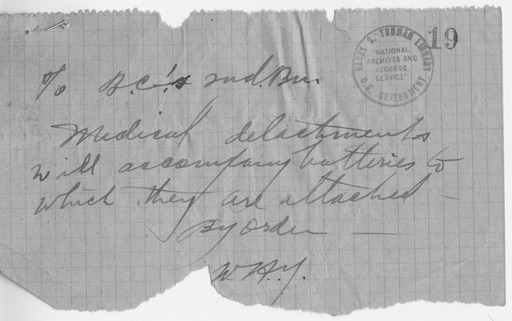 19
HARRY S. TRUMAN LIBRARY
"NATIONAL
ARCHIVES AND
RECORDS
SERVICE"
U.S. GOVERNMENT
To B.C.'s 2nd. Bn.
Medical detachments
will accompany batteries to
which they are attached –
By order –
W.H.Y.